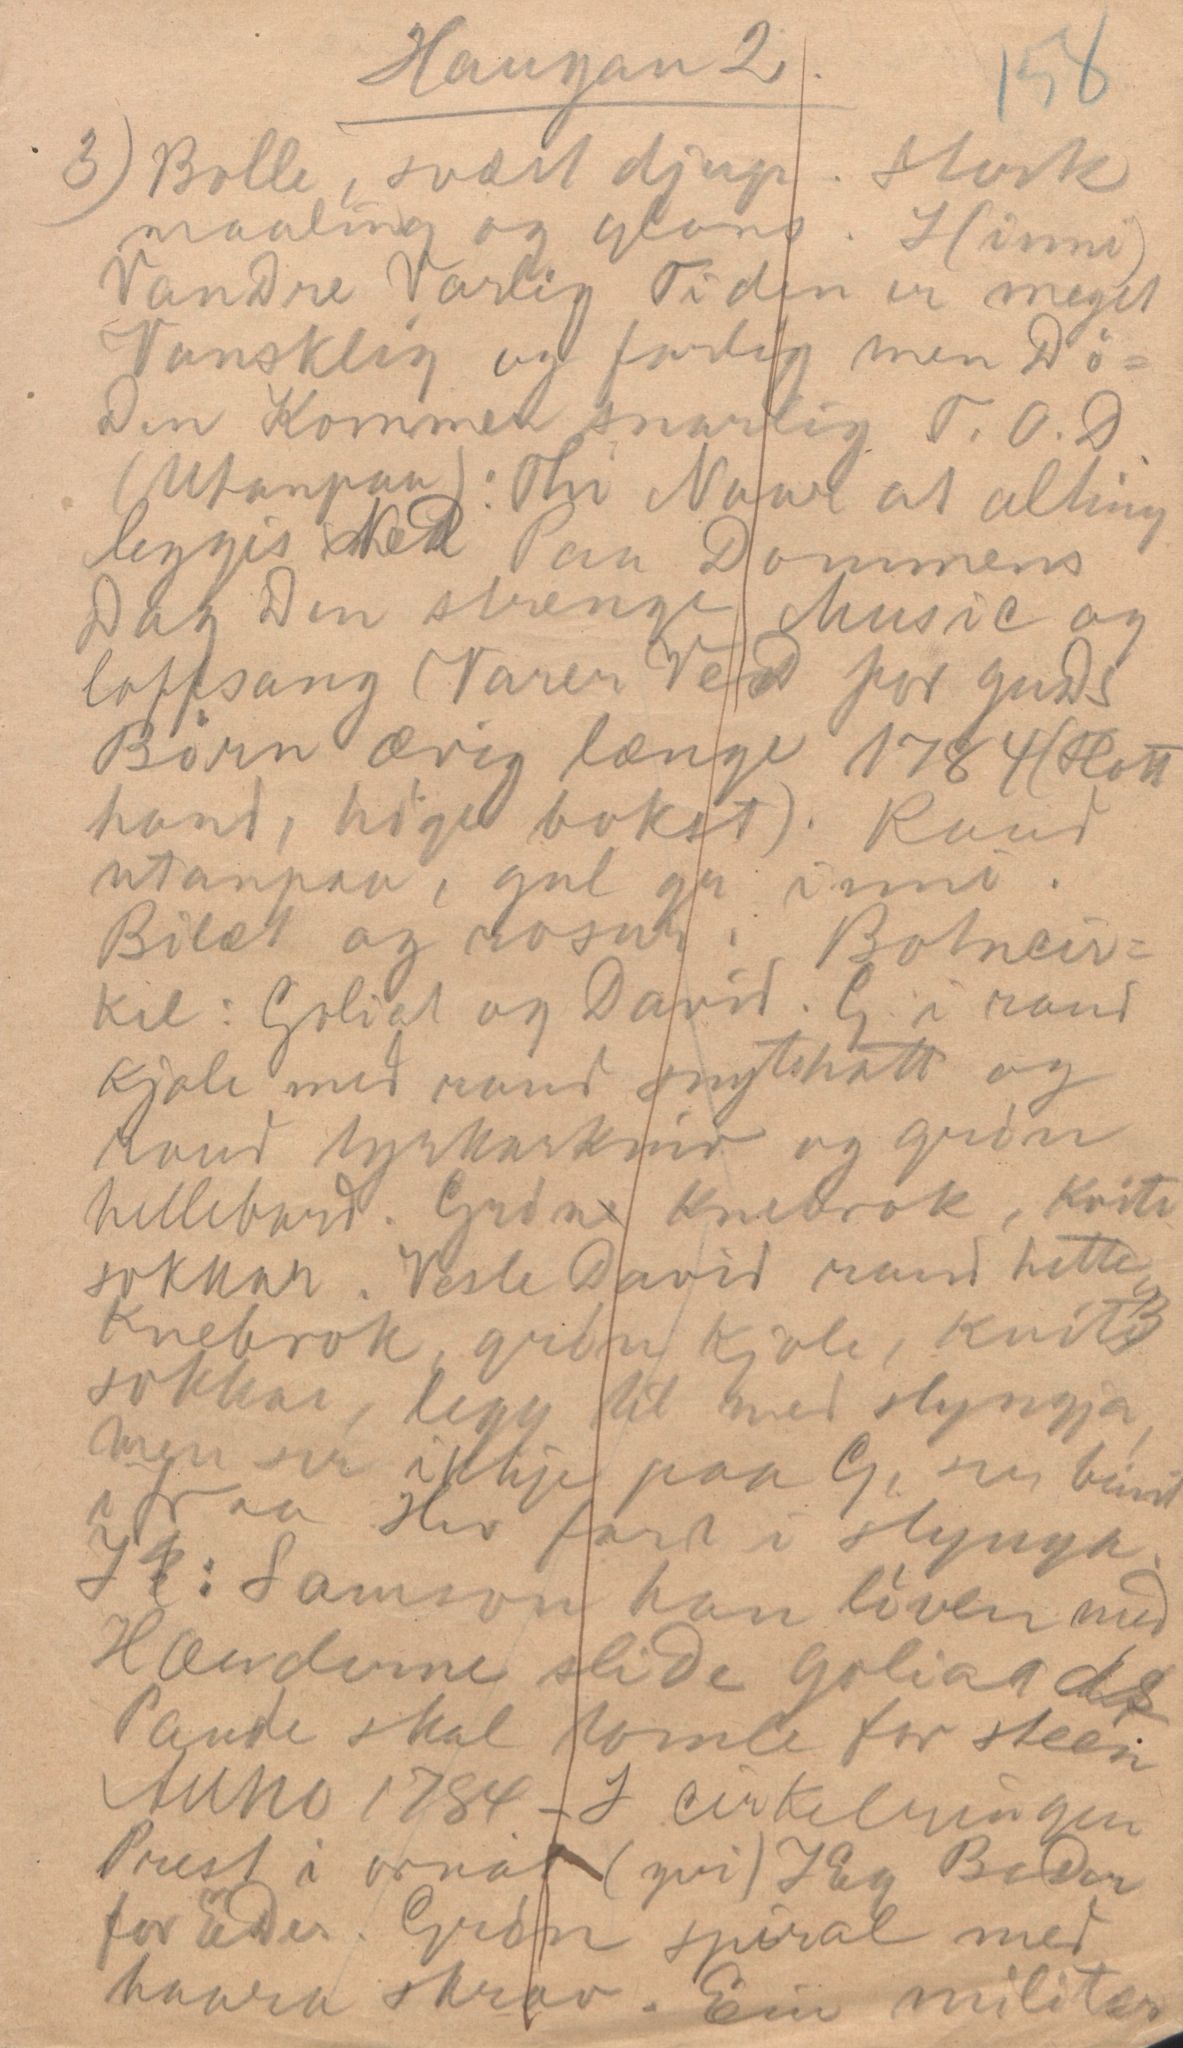 Haugan 2.
158
3) Bolle, svært djup. Sterk
maaling og glans. I (inni)
VanDre Varlig Tiden er meget
Vansklig og farlig men Dö=
Den Kommer snarlig T. O. D
(Utanpaa): Thi Naar at alting
leggis NeD Paa Dommens
Dag Den strenge Music og
loffsang Varer VeD for guDs
Börn ævig længe 1784 (Flott
hand, höge bokst). Raud
utanpaa, gul gr inni.
Bilæt og rosur. Botncir=
kel: Goliat og David. G. i raud
kjole med raud snytehatt og
raud tyrkarkniv og grön
hellebard. Grön knebrok, kvite
sokkar. Vesle David raud hette og
Knebrok, grön kjole, kvite
sokkar, legg til med slyngja,
men ser ikkje paa G, ser beint
ifraa fard i slynga.
Samson han löven med
Hænderne sliDe Goliaads
Pande skal tomle for steen
Anno 1784 - I cirkelringen
Prest i ornat (yvi) IEg BeDer
for EDer. Grön spiral med
haara skrav. Ein militær